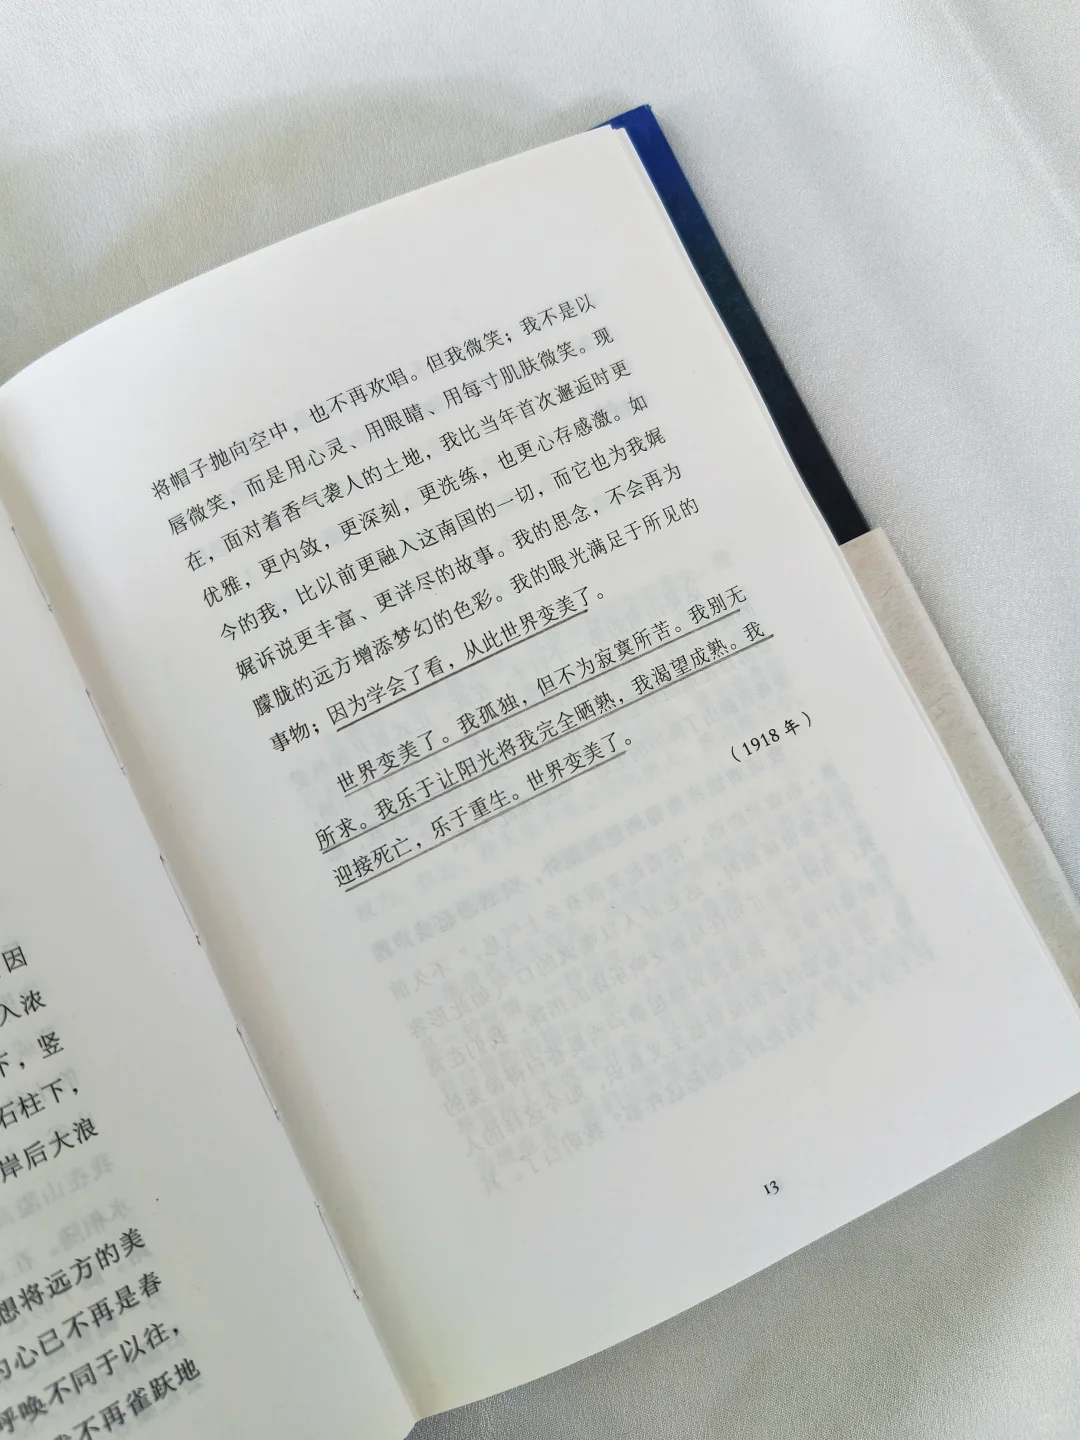 因
入浓
下，竖
石柱下，
岸后大浪
想将远方的美
的心已不再是春
呼唤不同于以往，
我不再雀跃地
将帽子抛向空中，也不再欢唱。但我微笑；我不是以
唇微笑，而是用心灵、用眼睛、用每寸肌肤微笑。现
在，面对着香气袭人的土地，我比当年首次邂逅时更
优雅，更内敛，更深刻，更洗练，也更心存感激。如
今的我，比以前更融入这南国的一切，而它也为我娓
娓诉说更丰富、更详尽的故事。我的思念，不会再为
朦胧的远方增添梦幻的色彩。我的眼光满足于所见的
事物；因为学会了看，从此世界变美了。
世界变美了。我孤独，但不为寂寞所苦。我别无
所求。我乐于让阳光将我完全晒熟，我渴望成熟。我
迎接死亡，乐于重生。世界变美了。
（1918 年）
13